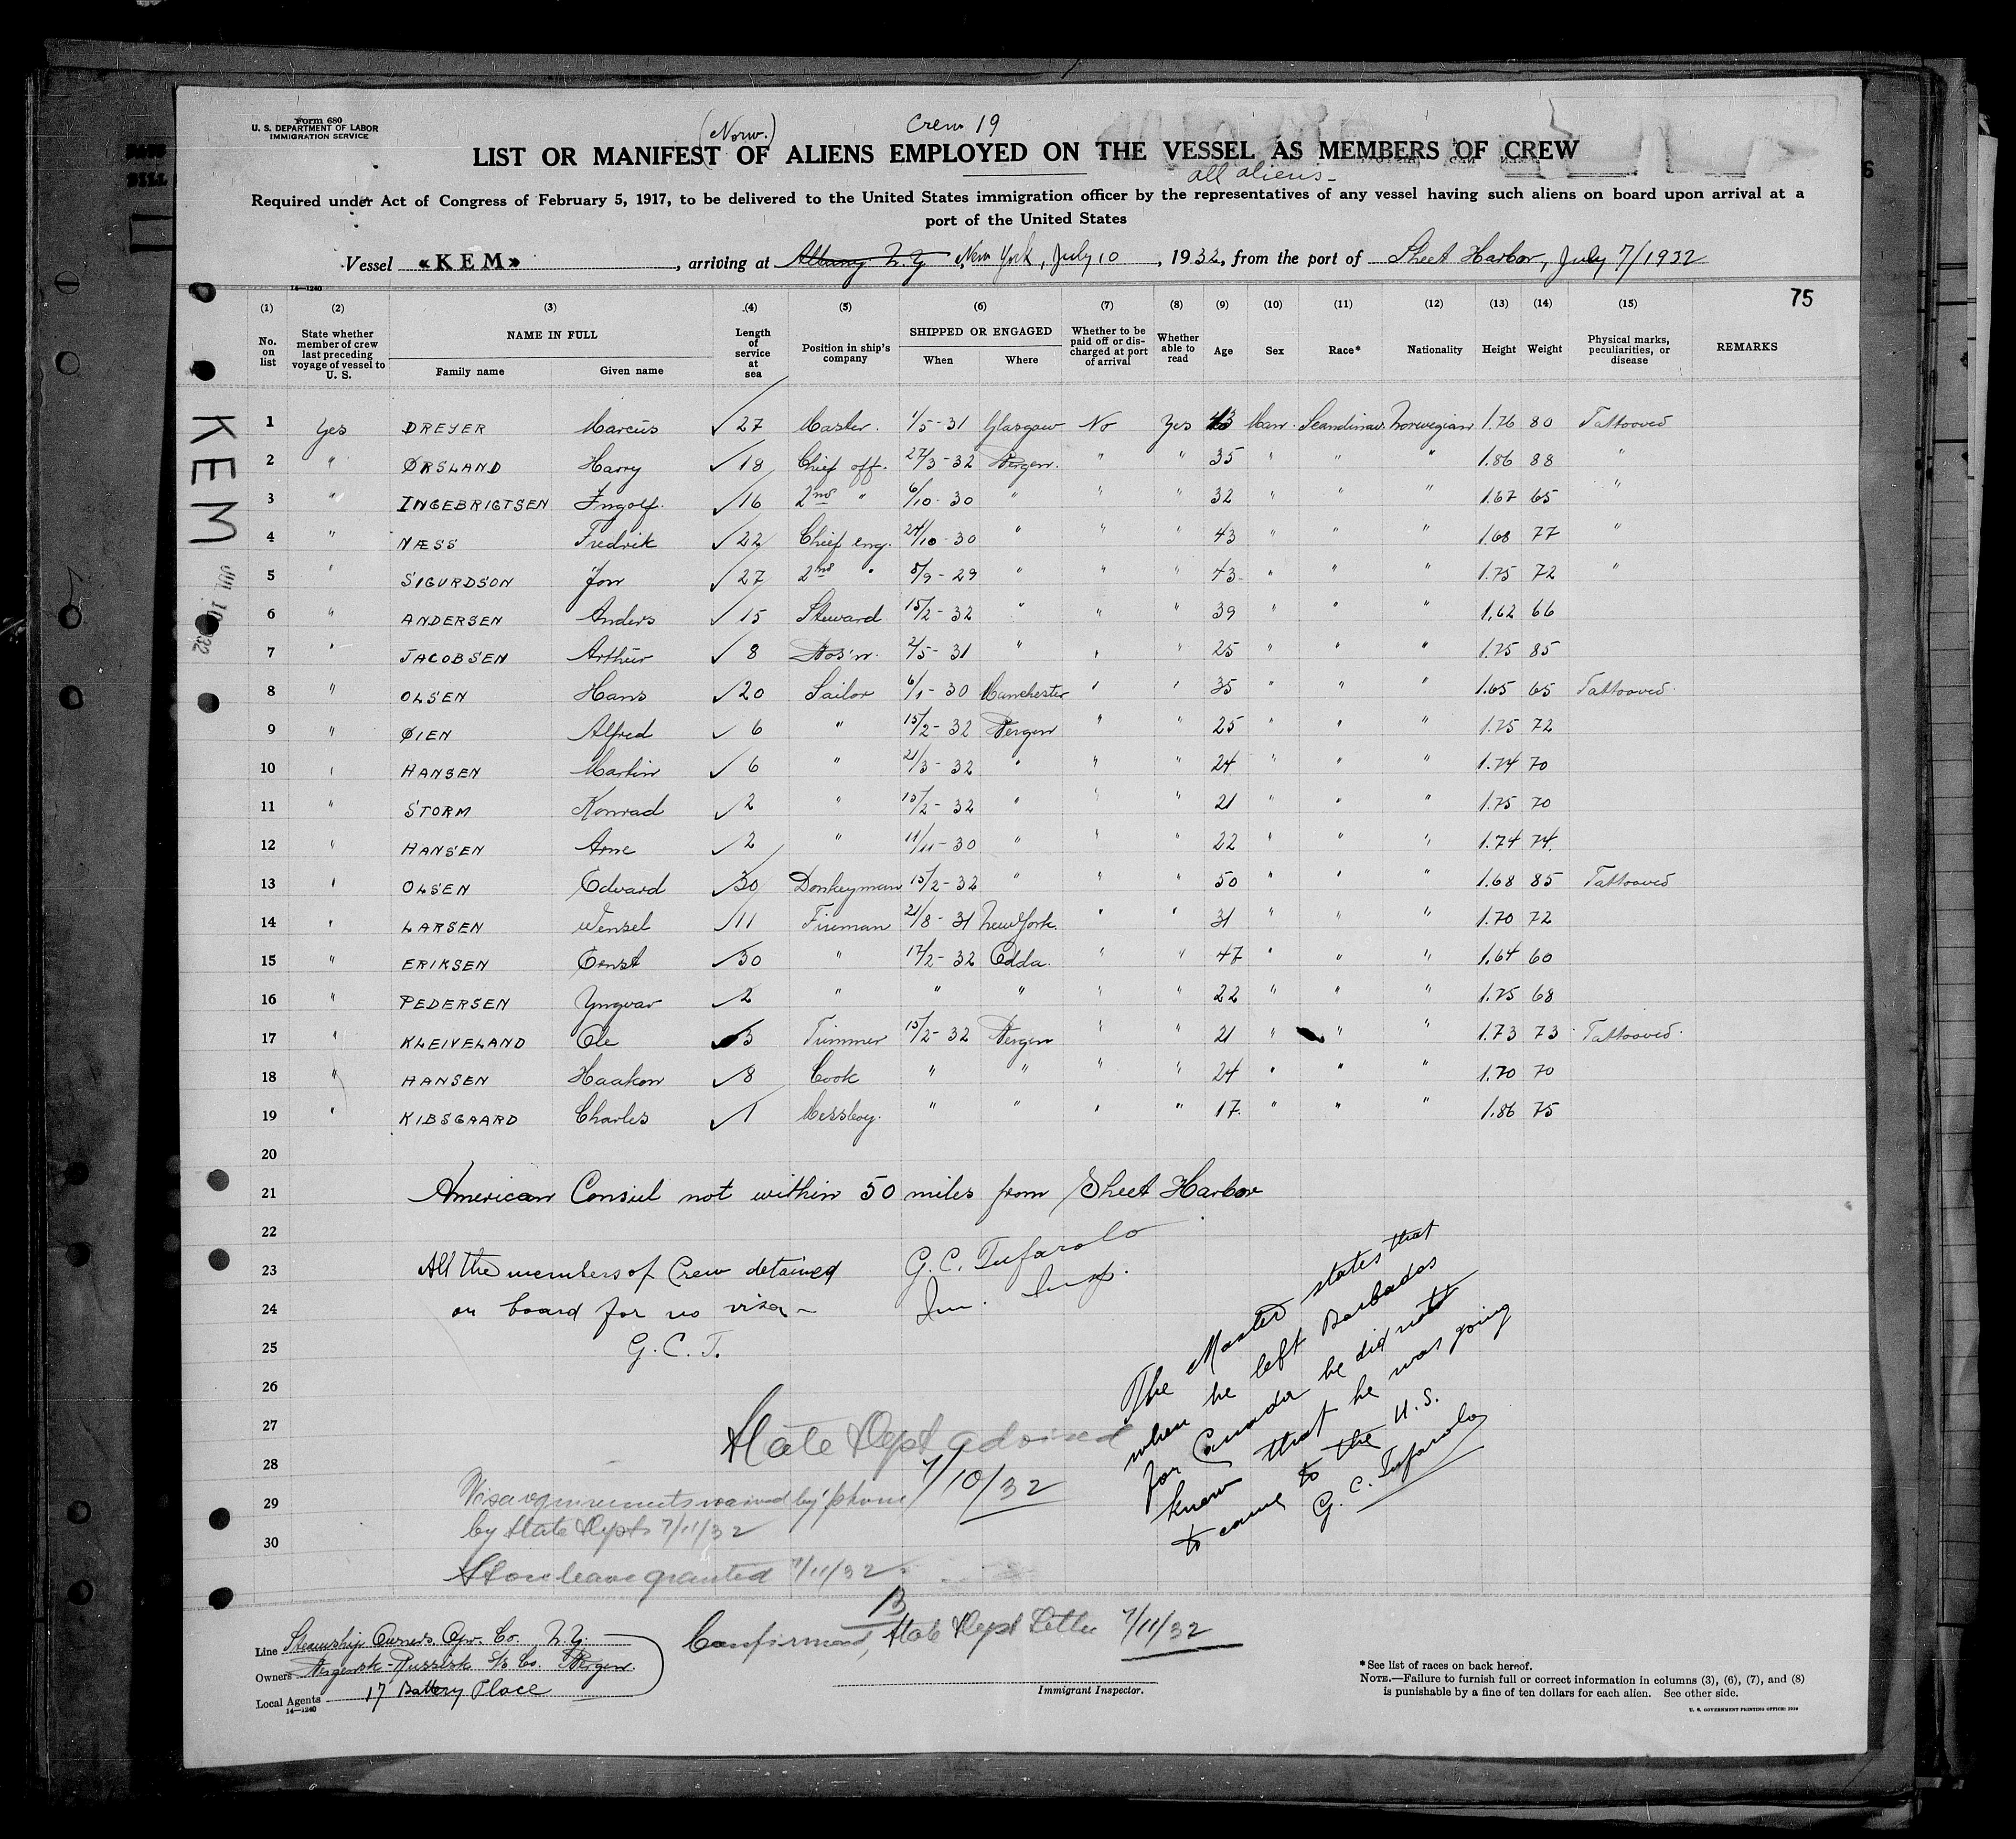 Form 680
U. S. DEPARTMENT OF LABOR
IMMIGRATION SERVICE
(Norw.)
Crew 19
LIST OR MANIFEST OF ALIENS EMPLOYED ON THE VESSEL AS MEMBERS OF CREW
all aliens-
Required under Act of Congress of February 5, 1917, to be delivered to the United States immigration officer by the representatives of any vessel having such aliens on board upon arrival at a
port of the United States
Vessel «KEM», arriving at Albany N.Y. New York, July 10, 1932, from the port of Sheet Harbor, July 7/1932
14—1240
75
(1) (2) (3) (4) (5) (6) (7) (8) (9) (10) (11) (12) (13) (14) (15)
No. on list
State whether member of crew last preceding voyage of vessel to U. S.
NAME IN FULL
Family name
Given name
Length of service at sea
Position in ship's company
SHIPPED OR ENGAGED
When
Where
Whether to be paid off or discharged at port of arrival
Whether able to read
Age
Sex
Race*
Nationality
Height
Weight
Physical marks, peculiarities, or disease
REMARKS
KEM
JUL 10 1932
1 Yes DREYER Marcus ✓ 27 Master. 1/5-31 Glasgow No Yes 43 Man Scandinav. Norwegian 1.76 80 Tattooved
2 " ØRSLAND Harry ✓ 18 Chief off. 27/3-32 Bergen. " " 35 " " " 1.86 88 "
3 " INGEBRIGTSEN Ingolf. ✓ 16 2nd " 6/10-30 " " " 32 " " " 1.67 65 "
4 " NÆSS Fredrik ✓ 22 Chief eng. 24/10-30 " " " 43 " " " 1.68 77 "
5 " SIGURDSON Jon ✓ 27 2nd " 8/9-29 " " " 43 " " " 1.75 72 "
6 " ANDERSEN Anders ✓ 15 Steward 15/2-32 " " " 39 " " " 1.62 66
7 " JACOBSEN Arthur ✓ 8 Bos'n. 2/5-31 " " " 25 " " " 1.75 85
8 " OLSEN Hans ✓ 20 Sailor 6/1-30 Manchester " " 35 " " " 1.65 65 Tattooved
9 " ØIEN Alfred ✓ 6 " 15/2-32 Bergen " " 25 " " " 1.75 72
10 " HANSEN Martin ✓ 6 " 21/3-32 " " " 24 " " " 1.74 70
11 " STORM Konrad ✓ 2 " 15/2-32 " " " 21 " " " 1.75 70
12 " HANSEN Arne ✓ 2 " 11/11-30 " " " 22 " " " 1.74 74.
13 " OLSEN Edvard ✓ 30 Donkeyman 15/2-32 " " " 50 " " " 1.68 85 Tattooved
14 " LARSEN Wensel ✓ 11 Fireman 21/8-31 New York. " " 31 " " " 1.70 72
15 " ERIKSEN Ernst ✓ 30 " 17/2-32 Odda. " " 47 " " " 1.64 60
16 " PEDERSEN Yngvar ✓ 2 " " " " " 22 " " " 1.75 68
17 " KLEIVELAND Ole ✓ 3 Trimmer 15/2-32 Bergen " " 21 " " " 1.73 73 Tattooved
18 " HANSEN Haakon ✓ 8 Cook " " " " 24 " " " 1.70 70
19 " KIBSGAARD Charles ✓ 1 Messboy. " " " " 17. " " " 1.86 75
20
21 American Consul not within 50 miles from Sheet Harbor
22
23 All the members of Crew detained G.C. Tufarolo
24 on board for no visa - Im. Insp.
25 G.C.T.
26
27
28
29
30
The Master states that
when he left Barbados
for Canada he did not
know that he was going
to come to the U.S.
G. C. Tufarolo
State Dept. advised
7/10/32
Visa requirements waived by phone
by State Dept 7/11/32
Shore leave granted 7/11/32.
B
Confirmed, State Dept Letter 7/11/32
Line Steamship Owners Opr. Co. N.Y.
Owners Bergensk-Russisk S/S Co. Bergen.
Local Agents 17 Battery Place
14—1240
Immigrant Inspector.
*See list of races on back hereof.
NOTE.—Failure to furnish full or correct information in columns (3), (6), (7), and (8)
is punishable by a fine of ten dollars for each alien. See other side.